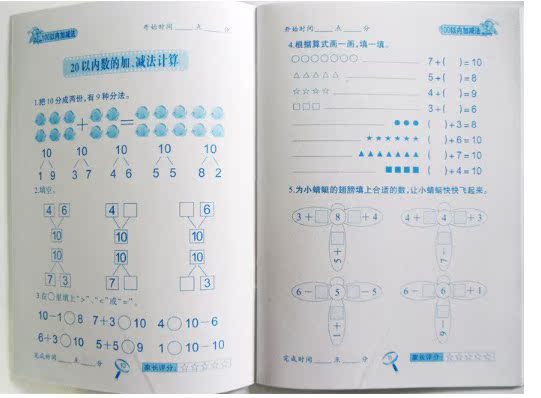 100以内加减法
开始时间____点____分
20以内数的加、减法计算
1.把10分成两份,有9种分法。
+ =
10 10 10 10 10
1 9 3 7 6 4 5 5 8 2
2.填空。
4 6 4 □ □ 6
10 10 10
10 10 10
7 3 □ 3 7 □
3.在○里填上">"、"<"或"="。
10-1○8 7+3○10 4○10-6
6+3○10 5+5○9 1○10-10
完成时间____点____分
家长评分:☆☆☆☆☆
开始时间____点____分
100以内加减法
4.根据算式画一画,填一填。
○○○○○○○ 7+( )=10
△△△△△ 5+( )=8
☆☆☆☆ 4+( )=9
□□□ 3+( )=6
●●● ( )+3=8
★★★★★★ ( )+6=10
▲▲▲▲▲▲▲ ( )+7=10
■■■■ ( )+4=10
5.为小蜻蜓的翅膀填上合适的数,让小蜻蜓快快飞起来。
3+□ 8 □+4
5+□
4+□ 4 □+3
7-□
6-□ 5 □-5
□+1
6-□ 6 □+1
9-□
完成时间____点____分
家长评分:☆☆☆☆☆